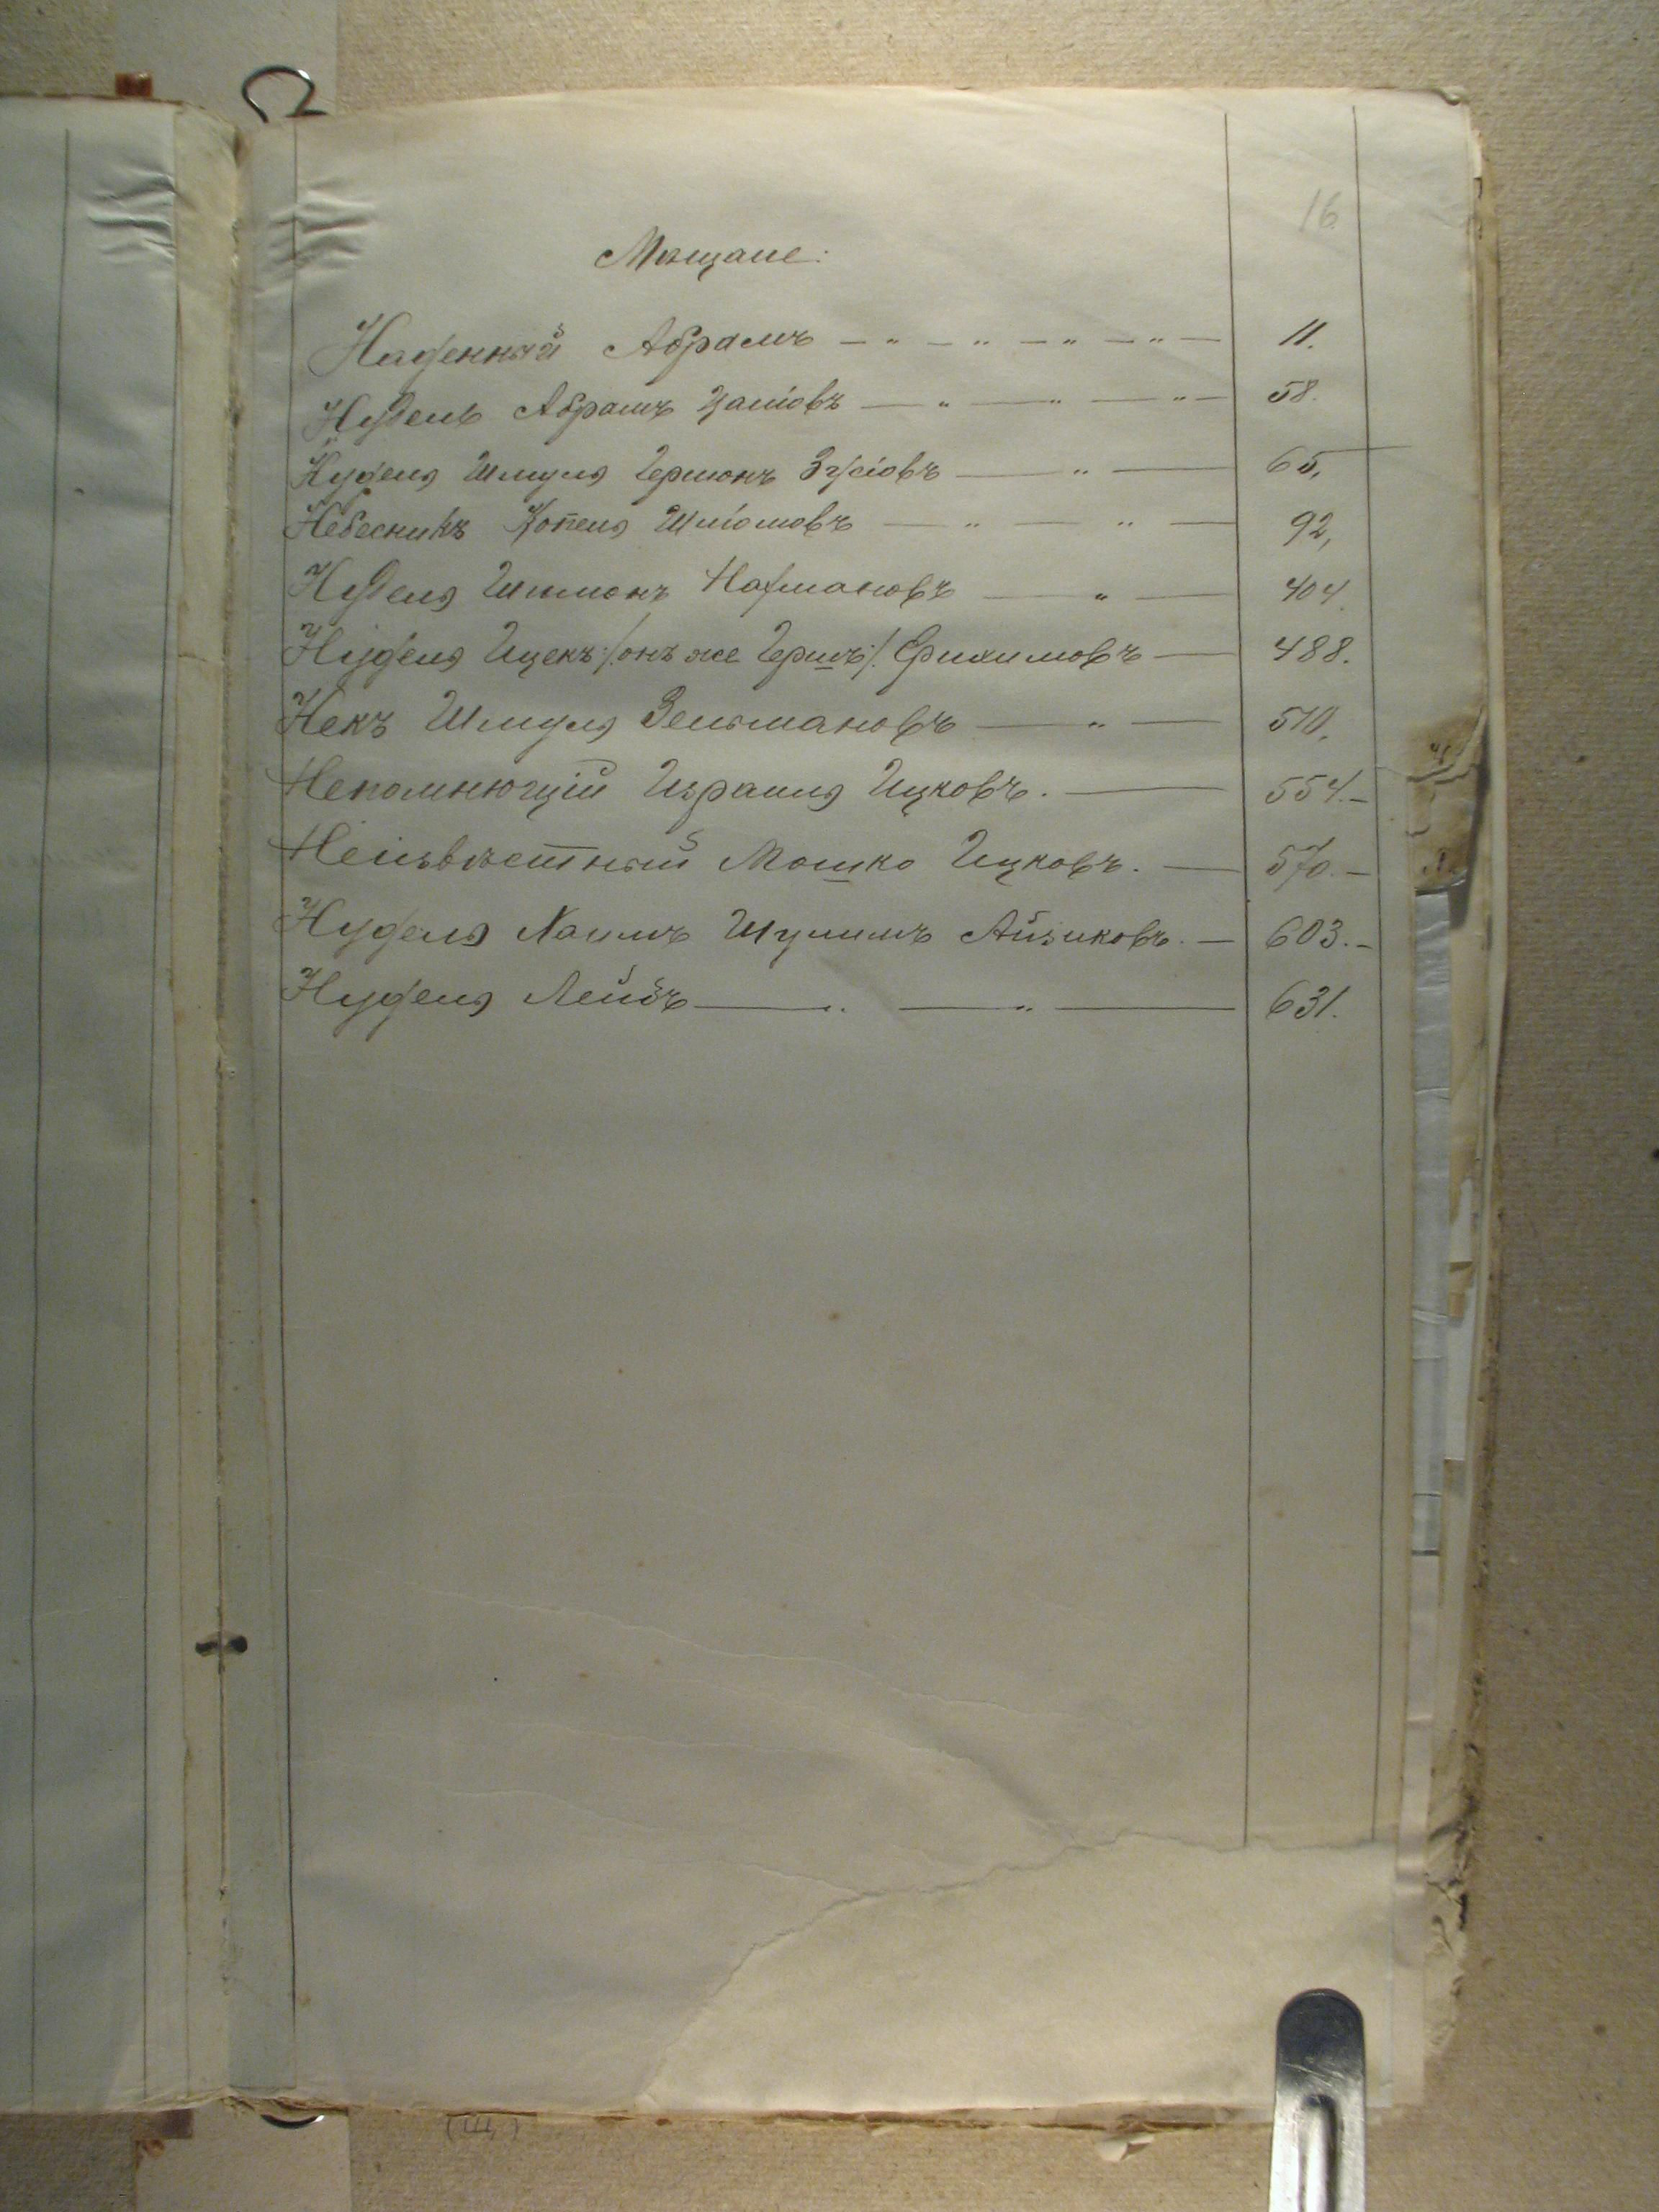 16
Мѣщане:
Найденный Абрамъ — " — " — " — " — 11.
Нудель Абрамъ — " — " — " — 58.
Нуделя Шмуля Гершонъ Зусіовъ — " — 65,
Небесникъ Копеля Шліомовъ — " — " — 92,
Нуделя Шимонъ Нахмановъ — " — 404.
Нуделя Ицекъ /:онъ же Гершъ:/ Фроимовъ — 488.
Некъ Шмуля Зельмановъ — " — 510.
Непомнющій Израиля Ицковъ. — 554.—
Неизвѣстный Мошко Ицковъ. — 570.—
Нуделя Хаимъ Шулимъ Айзиковъ. — 603.—
Нуделя Лейбъ — " — " — 631.